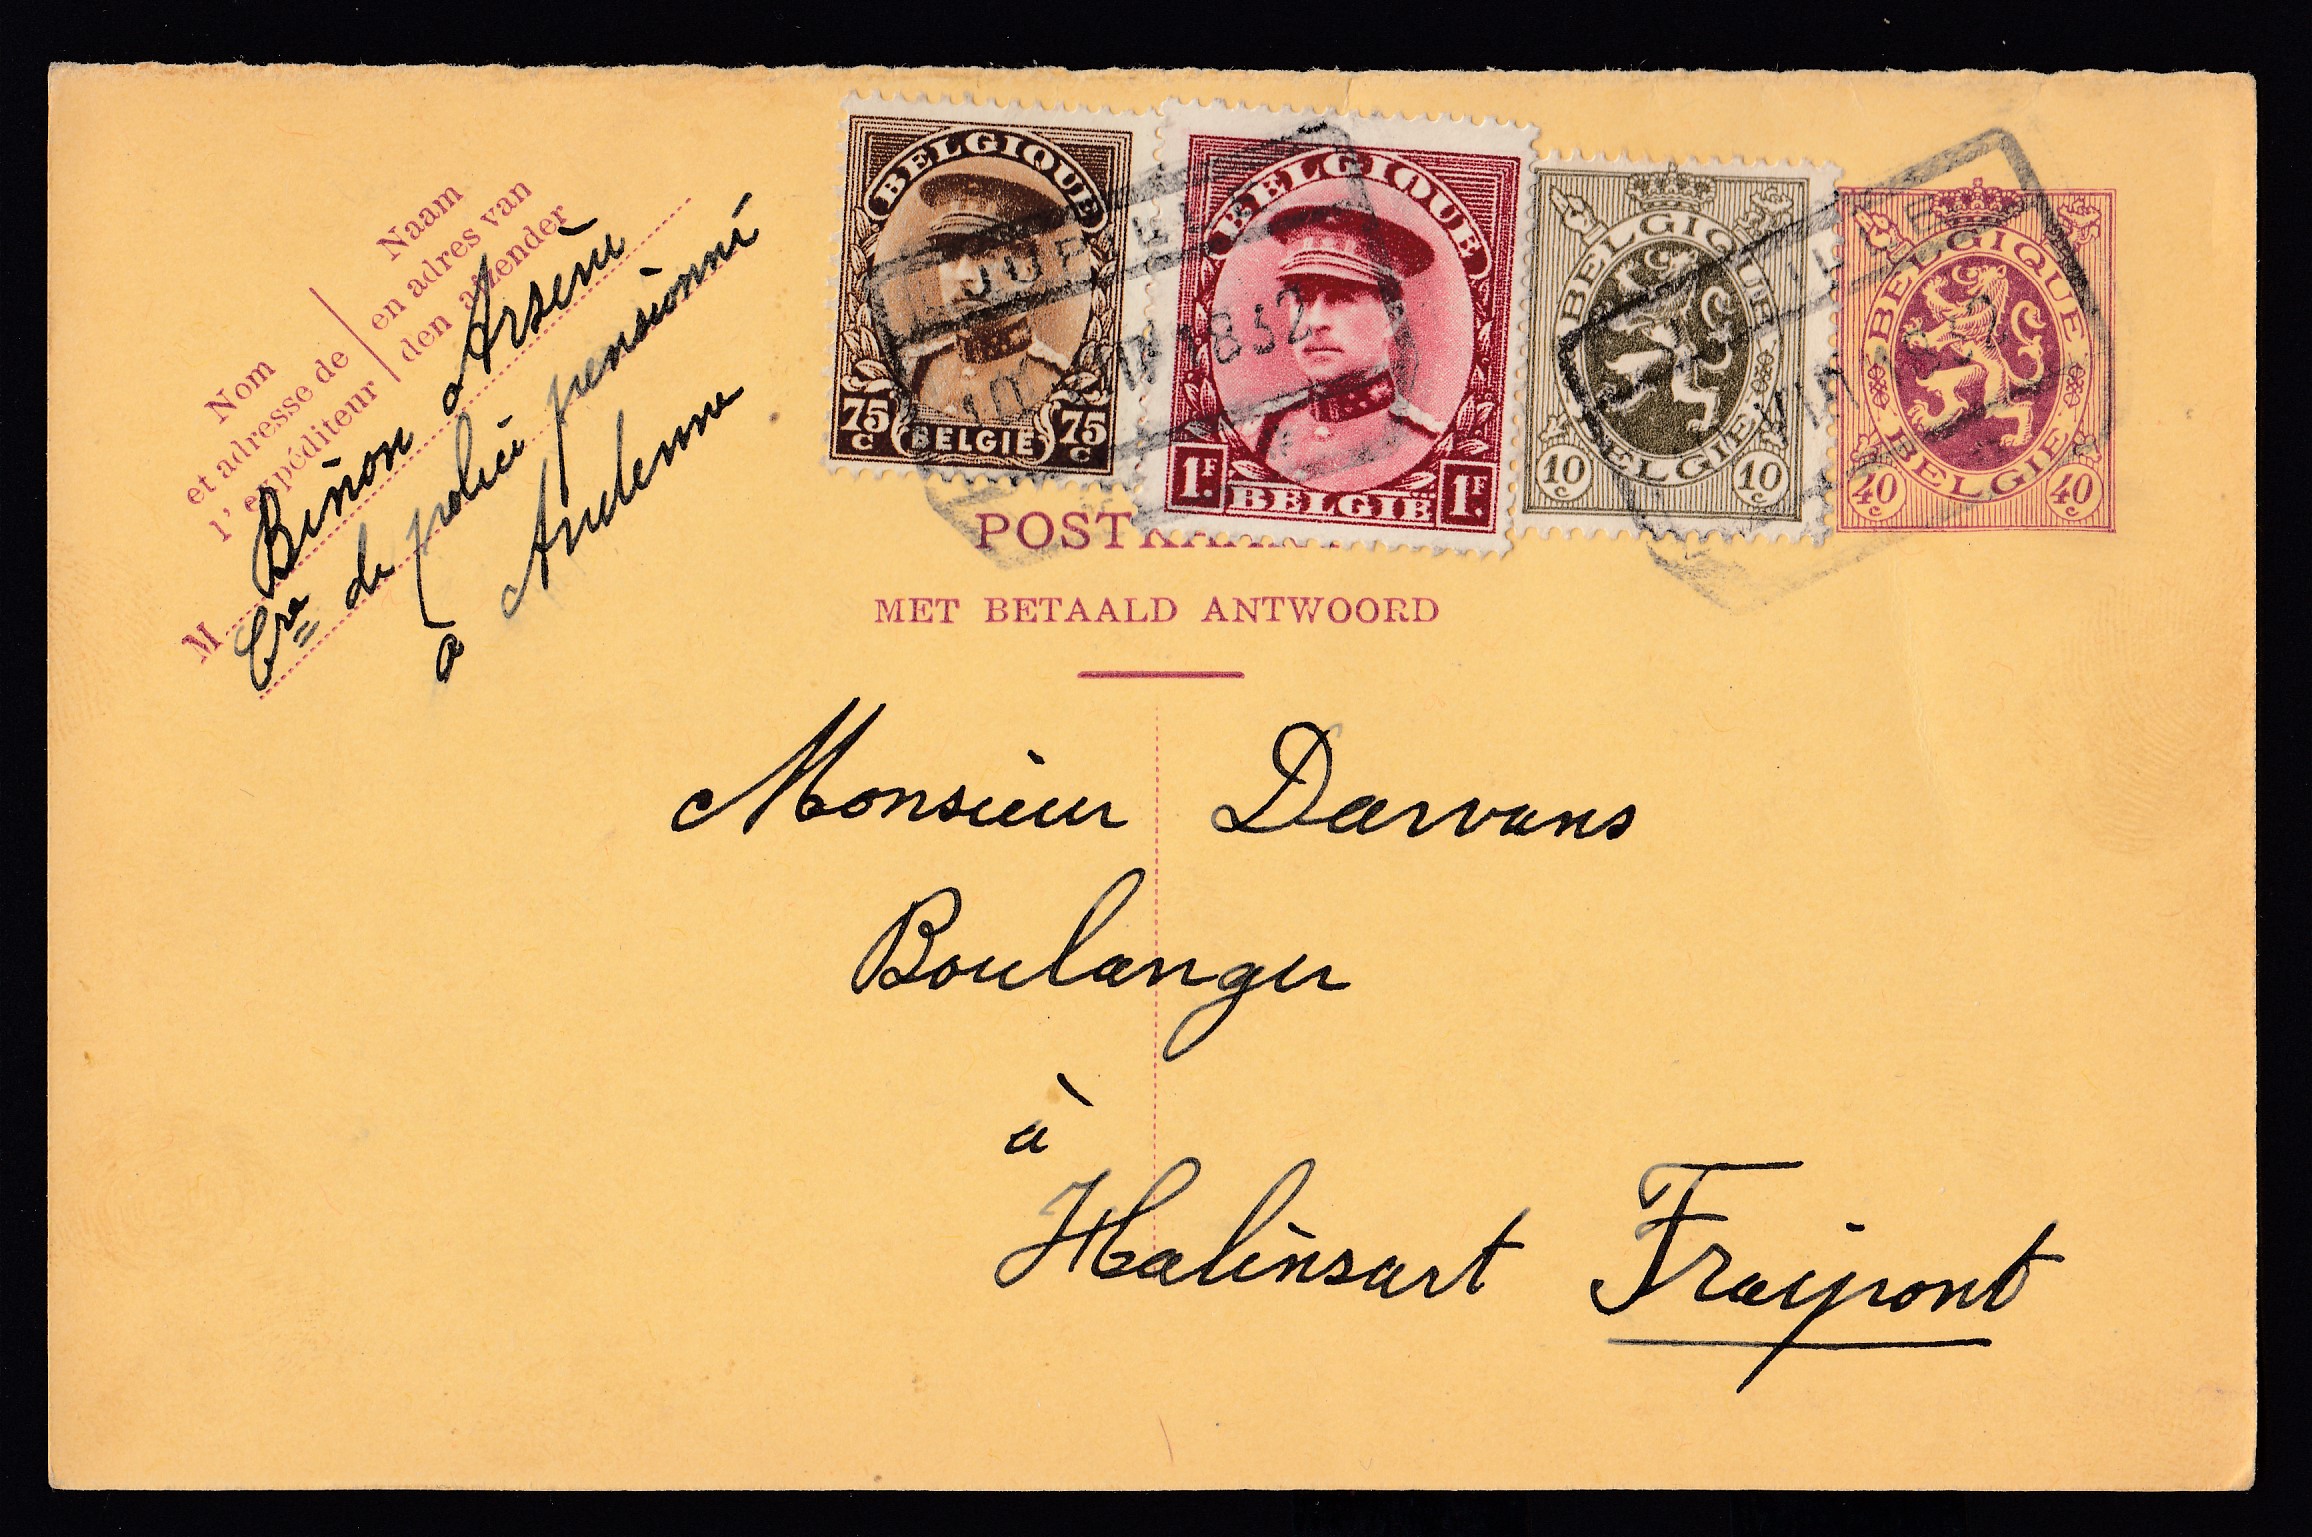 Nom
et adresse de
l'expéditeur
Naam
en adres van
den afzender
M Binon Arsène
Cre de police pensionné
à Andenne
BELGIQUE
75 c BELGIË 75 c
BELGIQUE
1F. BELGIË 1F.
BELGIQUE
BELGIË
10 c 10 c
BELGIQUE
BELGIË
40 c 40 c
MET BETAALD ANTWOORD
Monsieur Darvans
Boulanger
à
Halinsart Fraipont